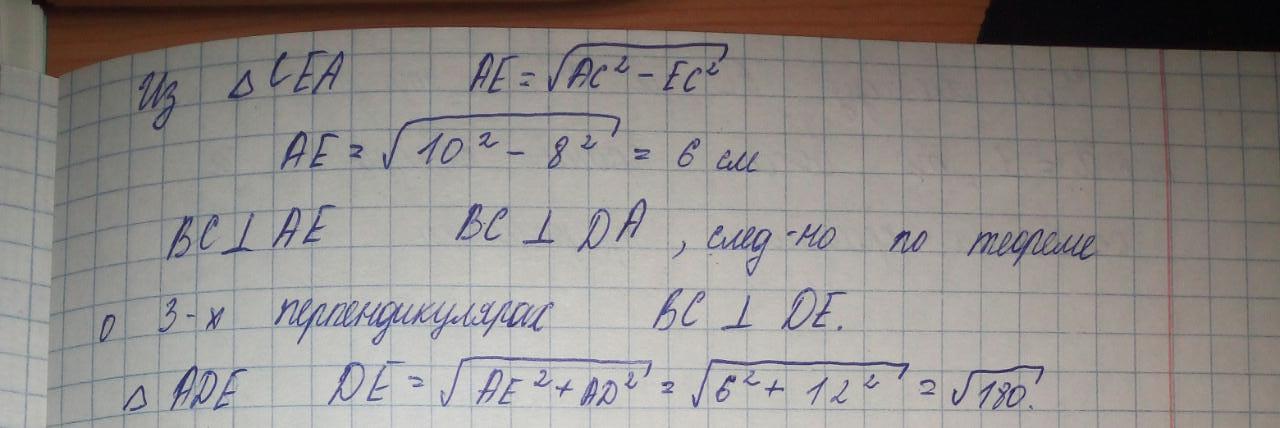 Из △ CEA AE = √AC² - EC²
AE = √10² - 8² = 6 см
BC ⊥ AE BC ⊥ DA , след-но по теореме
о 3-х перпендикулярах BC ⊥ DE.
△ ADE DE = √AE² + AD² = √6² + 12² = √180.